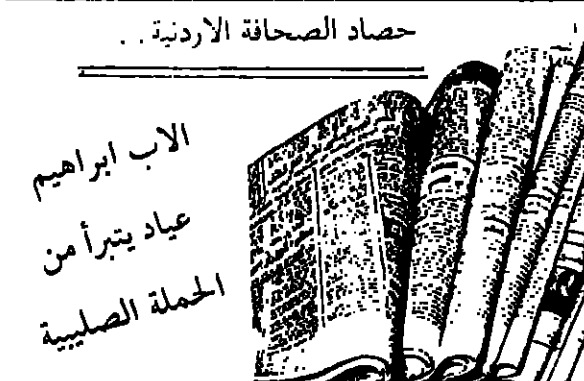 حصاد الصحافة الاردنية . .
الاب ابراهيم
عياد يتبرأ من
الحملة الصليبية